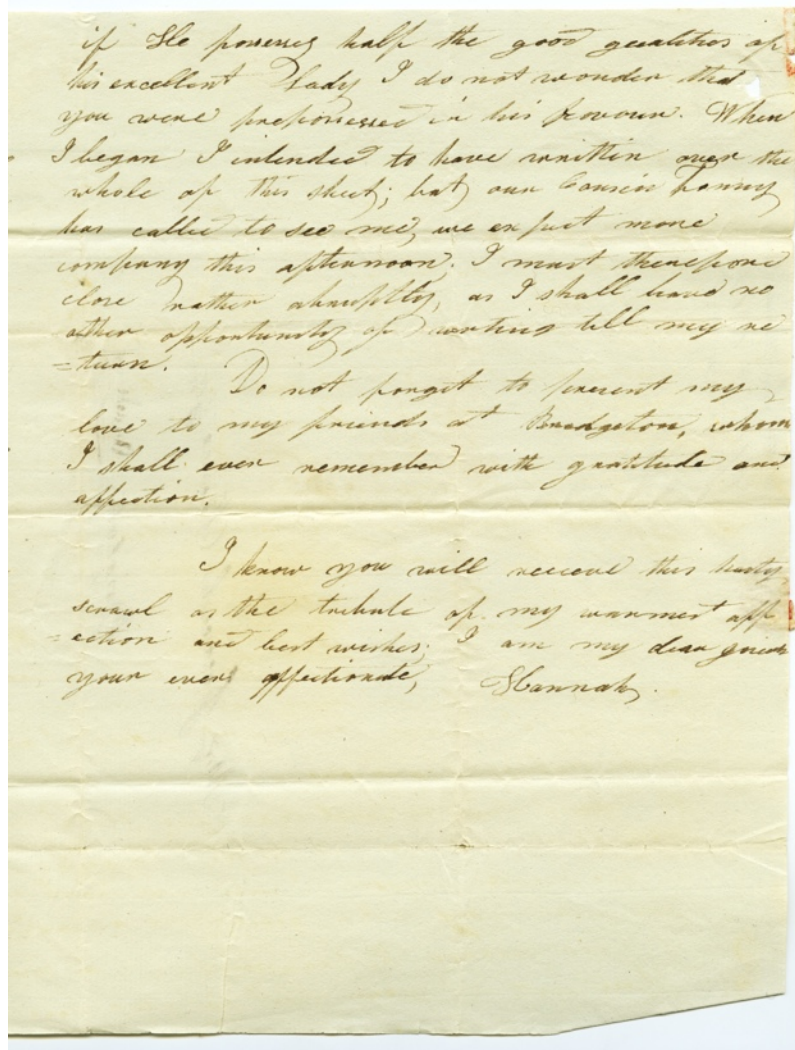 if He possesses half the good qualities of
his excellent Lady I do not wonder that
you were prepossessed in his favour. When
I began I intended to have written over the
whole of this sheet; but our Cousin Fanny
has called to see me, we expect more
company this afternoon. I must therefore
close rather abruptly, as I shall have no
other opportunity of writing till my re
=turn.
Do not forget to present my
love to my friends at Bridgeton, whom
I shall ever remember with gratitude and
affection.
I know you will receive this hasty
scrawl as the tribute of my warmest aff
=ection and best wishes; I am my dear friend
your ever affectionate, Hannah.